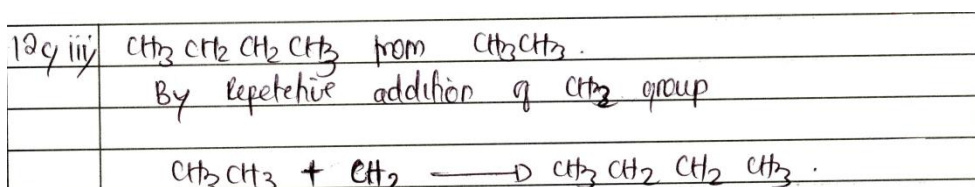 12c iii) CH3 CH2 CH2 CH3 from CH3CH3.
By Repetetive addition of CH2 group
CH3 CH3 + CH2 ⟶ CH3 CH2 CH2 CH3.